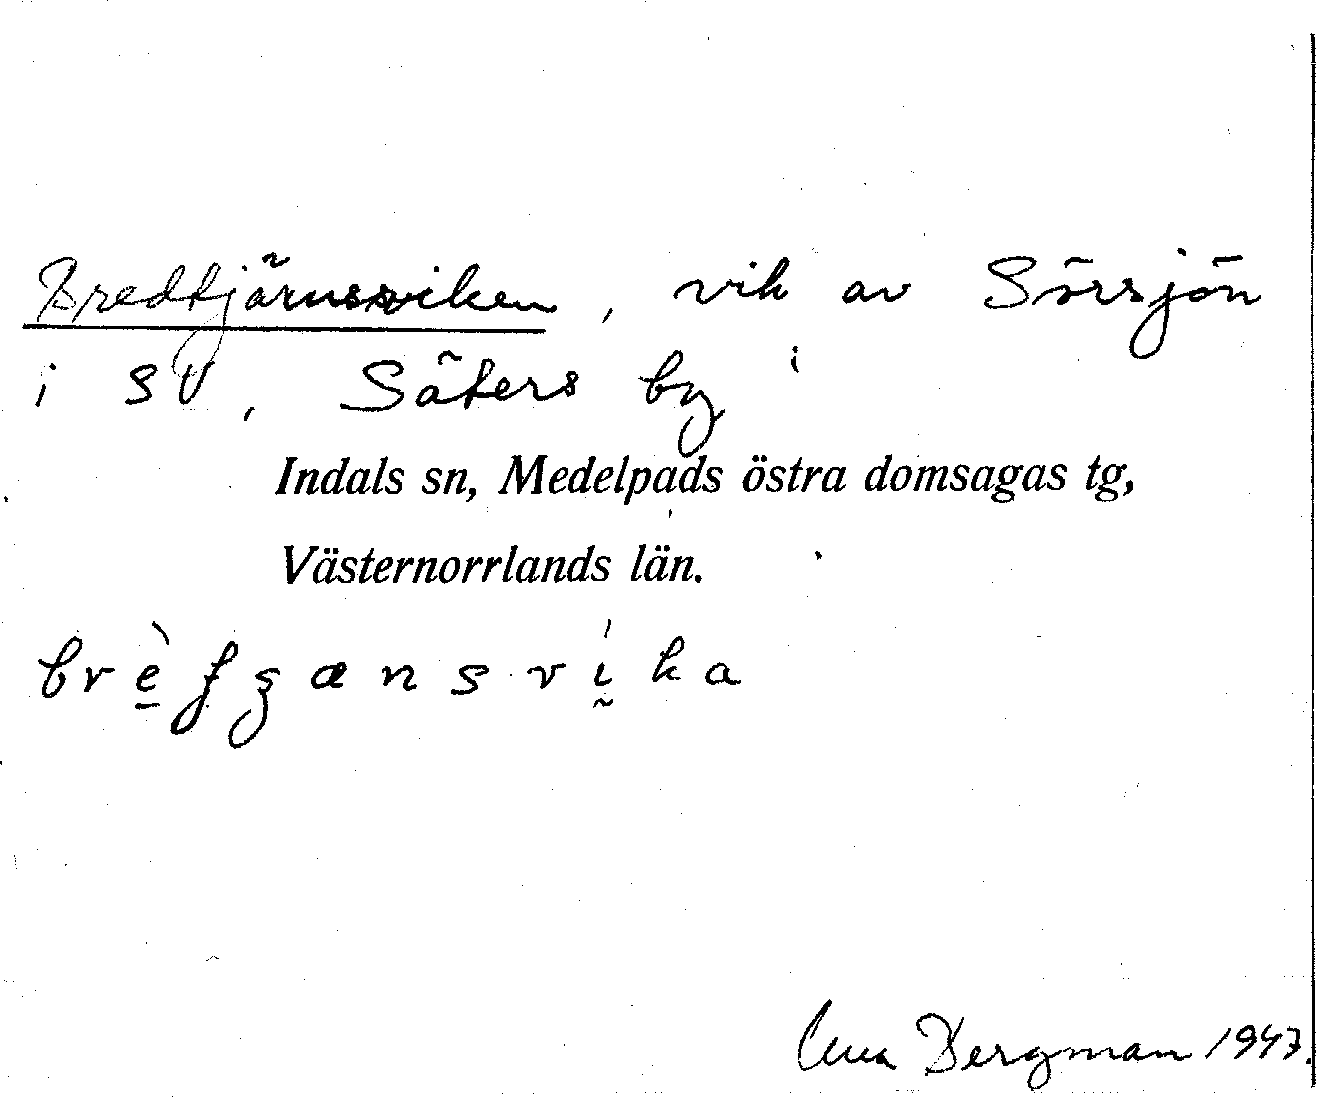 Bredtjärnsviken, vik av Sörsjön
i SV, Säters by i
Indals sn, Medelpads östra domsagas tg,
Västernorrlands län.
Bergman 1947.